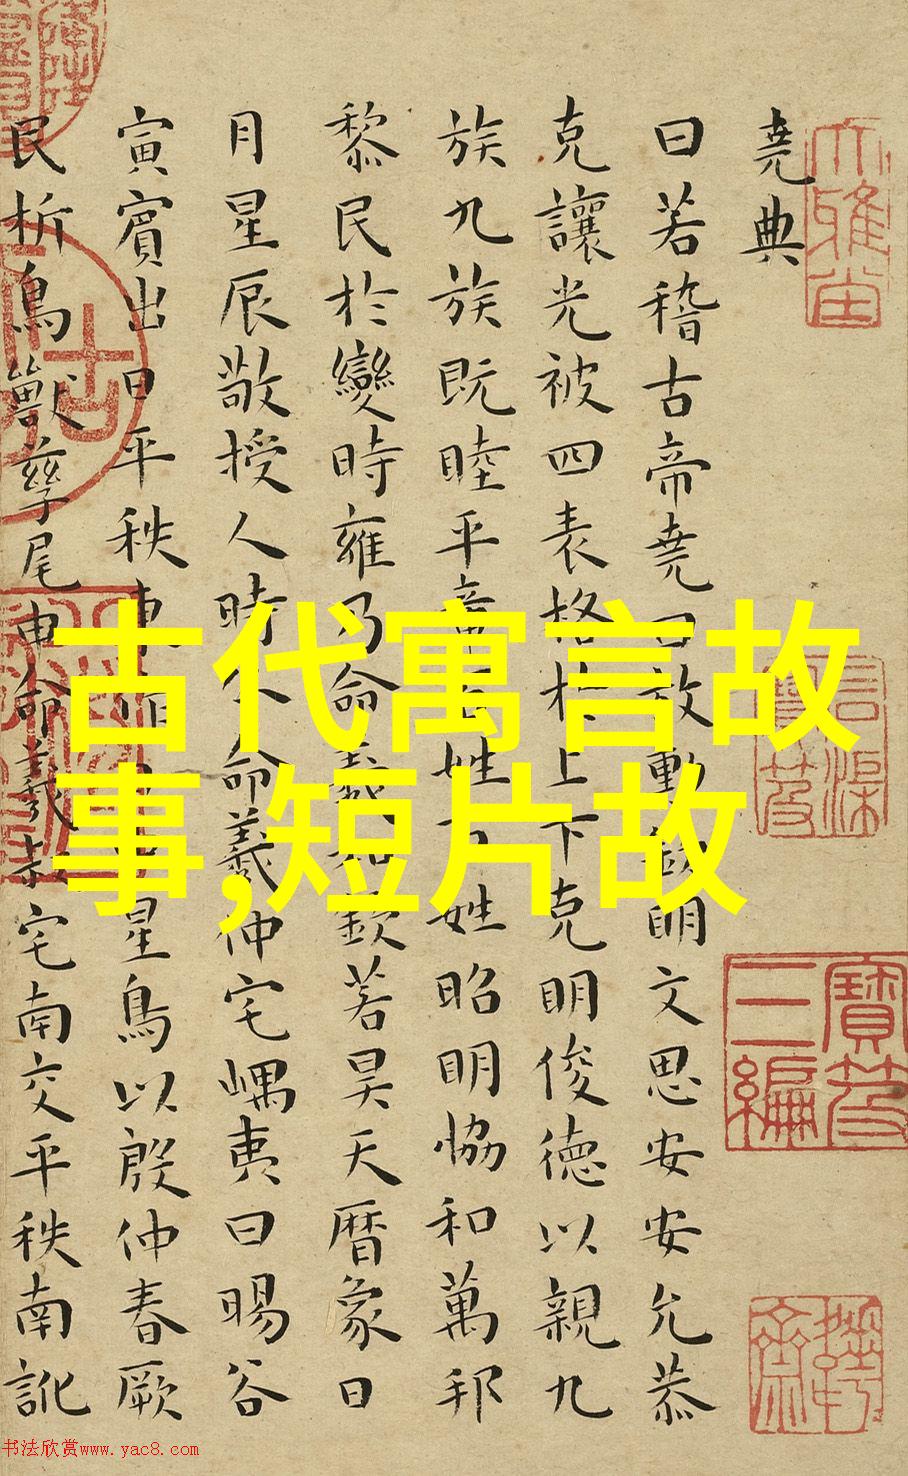 堯典
曰若稽古帝堯曰放勳欽明文思安安允恭
克讓光被四表格於上下克明俊德以親九
族九族既睦平章百姓百姓昭明恊和萬邦
黎民於變時雍乃命羲和欽若昊天曆象日
月星辰敬授人時分命羲仲宅嵎夷曰暘谷
寅賓出日平秩東作日中星鳥以殷仲春厥
民析鳥獸孳尾申命羲叔宅南交平秩南訛
古代寓言故
事,短片故
寶笈三編
书法欣赏www.yac8.com